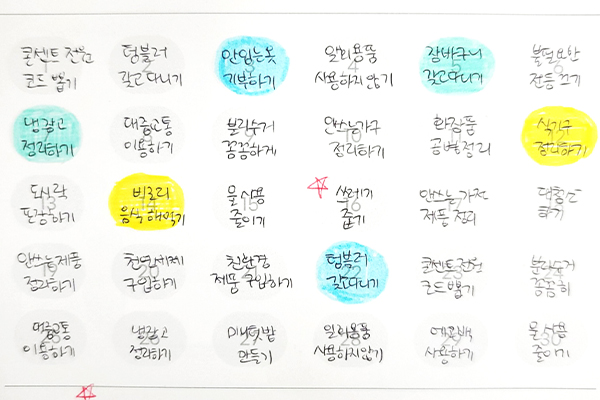 콘센트 전원 텀블러 안입는옷 일회용품 장바구니 불필요한
코드 뽑기 갖고 다니기 기부하기 사용하지 않기 갖고다니기 전등 끄기
냉장고 대중교통 분리수거 안쓰는가구 화장품 식기구
정리하기 이용하기 꼼꼼하게 정리하기 공병정리 정리하기
도시락 밀프리 물 사용 쓰레기 안쓰는 가전 대청소
포장하기 음식 해먹기 줄이기 줍기 제품 정리 하기
안쓰는제품 천연세제 친환경 텀블러 콘센트 전원 분리수거
정리하기 구입하기 제품 구입하기 갖고다니기 코드뽑기 꼼꼼히
대중교통 냉장고 미니텃밭 일회용품 에코백 물 사용
이용하기 정리하기 만들기 사용하지않기 사용하기 줄이기